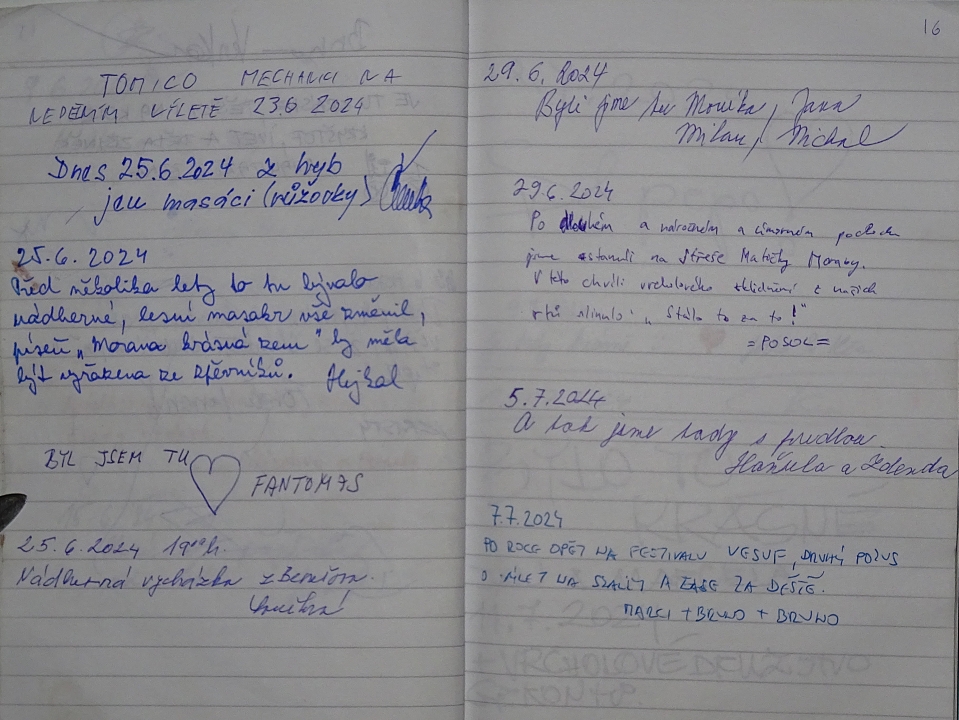 TOMICO MECHANICI NA
NEDĚLNÍM VÝLETĚ 23.6 2024
Dnes 25.6.2024 z hub
jen masáci (růžovky)
25.6.2024
Před několika lety to tu bývalo
nádherné, lesní masakr vše změnil,
píseň „Morava krásná zem" by měla
být vyřazena ze zpěvníků. Hejkal
BYL JSEM TU
FANTOMAS
25.6.2024 19ooh.
Nádherná vycházka z Benešova.
16
29.6.2024
Byli jsme tu Monika, Jana
Milan, Michal
29.6.2024
Po dlouhém a náročném a úmorném pochodu
jsme stanuli na střeše Matičky Moravy.
V této chvíli vrcholového zklidnění z našich
rtů slinulo: „Stálo to za to!"
=POSOL=
5.7.2024
A tak jsme tady s
a Zdenda
7.7.2024
PO ROCE OPĚT NA FESTIVALU VESUF, DRUHÝ POKUS
O VÝLET NA SKALKY A ZASE ZA DEŠTĚ.
MARCI + BRUNO + BRUNO